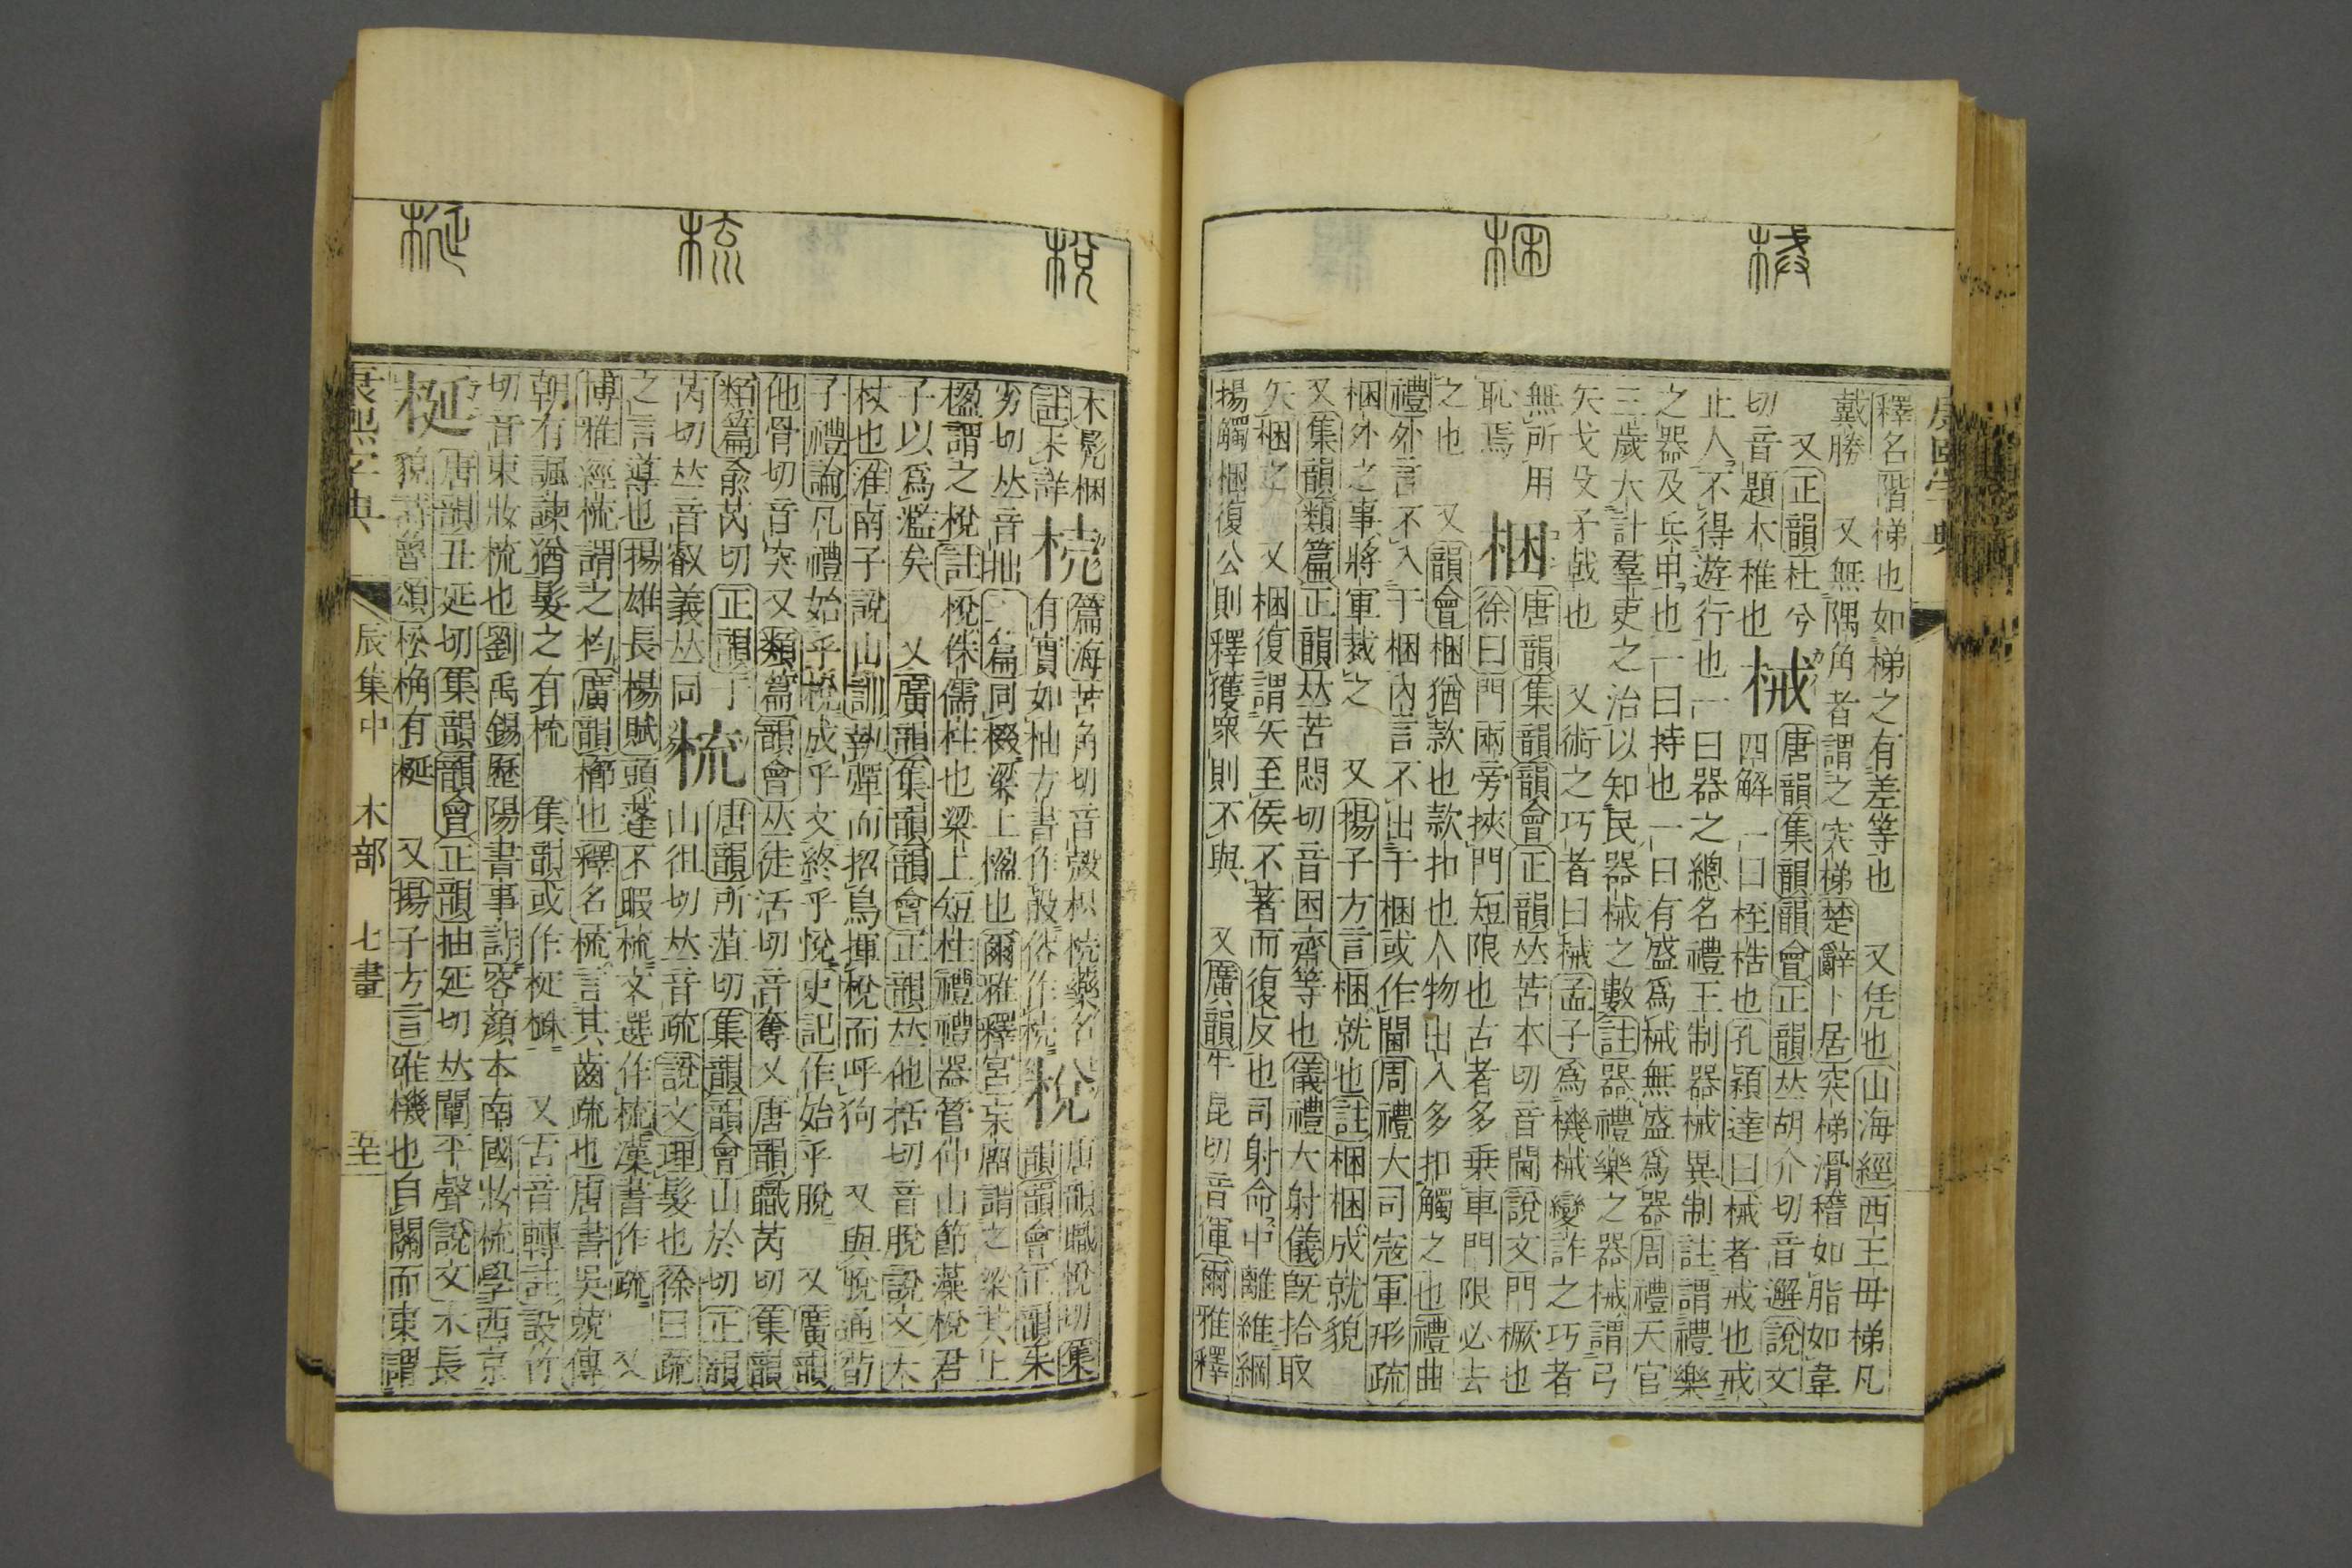 釋名階梯也如梯之有差等也　又凭也山海經西王母梯凡
戴勝　又無隅角者謂之突梯楚辭卜居突梯滑稽如脂如韋
又正韻杜兮
切音題木稚也
械
唐韻集韻韻會正韻𠀤胡介切音邂說文
四解一曰桎梏也孔穎達曰械者戒也戒
止人不得遊行也一曰器之總名禮王制器械異制註謂禮樂
之器及兵甲也一曰持也一曰有盛爲械無盛爲器周禮天官
三歲大計羣吏之治以知民器械之數註器禮樂之器械謂弓
矢戈殳矛戟也　又術之巧者曰械孟子爲機械變詐之巧者
無所用
恥焉
梱
唐韻集韻韻會正韻𠀤苦本切音閫說文門橛也
徐曰門兩旁挾門短限也古者多乗車門限必去
之也　又韻會梱猶款也款扣也人物出入多扣觸之也禮曲
禮外言不入于梱內言不出于梱或作閫周禮大司寇軍形疏
梱外之事將軍裁之　又揚子方言梱就也註梱梱成就貌
又集韻類篇正韻𠀤苦悶切音困齊等也儀禮大射儀旣拾取
矢梱之　又梱復謂矢至侯不著而復反也司射命中離維綱
揚觸梱復公則釋獲衆則不與　又廣韻牛昆切音㑮爾雅釋
木髡梱
註未詳
梲
篇海苦角切音殼柷梲藥名
有實如柚方書作殼俗作梲
梲
唐韻職悅切集韻韻會正韻朱
劣切𠀤音拙玉篇同棳梁上楹也爾雅釋宮杗廇謂之梁其上
楹謂之梲註梲侏儒柱也梁上短柱禮禮器管仲山節藻梲君
子以爲濫矣　又廣韻集韻韻會正韻𠀤他括切音脫說文木
杖也淮南子說山訓執彈而招鳥揮梲而呼狗　又與脫通荀
子禮論凡禮始乎梲成乎文終乎悅史記作始乎脫　又廣韻
他骨切音突又類篇韻會𠀤徒活切音奪又唐韻職芮切集韻
類篇兪芮切正韻于
芮切𠀤音叡義𠀤同
梳
唐韻所葅切集韻韻會山於切正韻
山徂切𠀤音疏說文理髮也徐曰疏
之言導也揚雄長楊賦頭蓬不暇梳文選作梳漢書作疏　又
博雅經梳謂之杼廣韻櫛也釋名梳言其齒疏也唐書吳兢傳
朝有諷諫猶髮之有梳　集韻或作梴𣔺　又古音轉註設竹
切音束妝梳也劉禹錫歷陽書事詩容顏本南國妝梳學西京
梴
唐韻丑延切集韻韻會正韻抽延切𠀤闡平聲說文木長
貌詩魯頌松桷有梴　又揚子方言碓機也自關而東謂
康熙字典　辰集中　木部　七畫